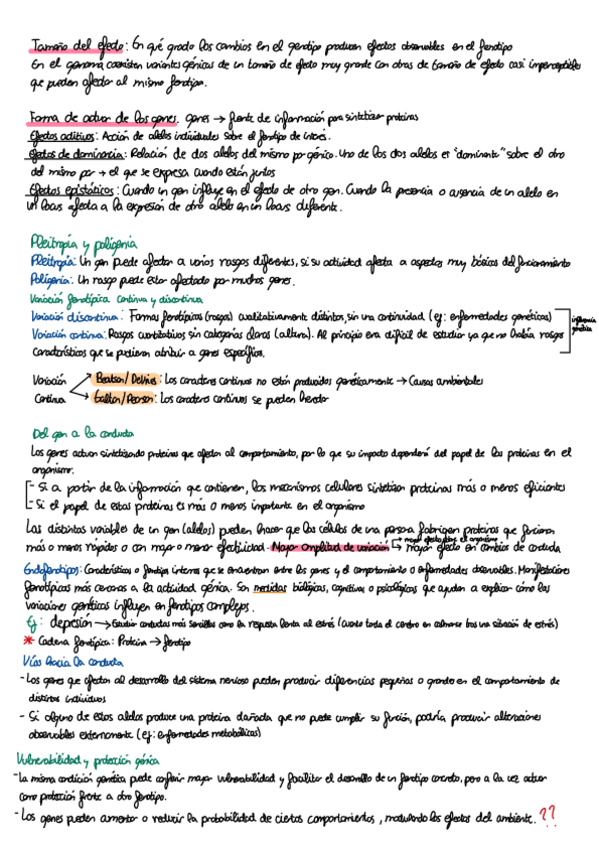 Tamaño del efecto: En qué grado los cambios en el genotipo producen efectos observables en el fenotipo
En el genoma coexisten variantes génicas de un tamaño de efecto muy grande con otras de tamaño de efecto casi imperceptibles
que pueden afectar al mismo fenotipo.
Forma de actuar de los genes. genes → fuente de información para sintetizar proteínas
Efectos aditivos: Acción de alelos individuales sobre el fenotipo de interés.
Efectos de dominancia: Relación de dos alelos del mismo par génico. Uno de los dos alelos es "dominante" sobre el otro
del mismo par → el que se expresa cuando están juntos
Efectos epistáticos: Cuando un gen influye en el efecto de otro gen. Cuando la presencia o ausencia de un alelo en
un locus afecta a la expresión de otro alelo en un locus diferente.
Pleitropía y poligenia
Pleitropía: Un gen puede afectar a varios rasgos diferentes, si su actividad afecta a aspectos muy básicos del funcionamiento
Poligenia: Un rasgo puede estar afectado por muchos genes.
Variación fenotípica continua y discontinua
Variación discontinua: Formas fenotípicas (rasgos) cualitativamente distintas, sin una continuidad (ej: enfermedades genéticas)
influencia
genética
Variación continua: Rasgos cuantitativos sin categorías claras (altura). Al principio era difícil de estudiar ya que no había rasgos
característicos que se pudieran atribuir a genes específicos.
Variación Bateson/DeVries: Los caracteres continuos no están producidos genéticamente → Causas ambientales
Continua Galton/Pearson: Los caracteres continuos se pueden heredar
Del gen a la conducta
Los genes actúan sintetizando proteínas que afectan al comportamiento, por lo que su impacto dependerá del papel de las proteínas en el
organismo.
- Si a partir de la información que contienen, los mecanismos celulares sintetizan proteínas más o menos eficientes
- Si el papel de estas proteínas es más o menos importante en el organismo
Las distintas variables de un gen (alelos) pueden hacer que las células de una persona fabriquen proteínas que funcionan
más o menos rápidos o con mayor o menor efectividad. Mayor amplitud de variación ↳ mayor efecto en cambios de conducta
Endofenotipos: Características o fenotipos internos que se encuentran entre los genes y el comportamiento o enfermedades observables. Manifestaciones
fenotípicas más cercanas a la actividad génica. Son medidas biológicas, cognitivas o psicológicas que ayudan a explicar cómo las
variaciones genéticas influyen en fenotipos complejos.
Ej: depresión → Estudiar conductas más sencillas como la respuesta lenta al estrés (cuanto tarda el cerebro en calmarse tras una situación de estrés)
* Cadena fenotípica: Proteína → fenotipo
Vías hacia la conducta
- Los genes que afectan al desarrollo del sistema nervioso pueden producir diferencias pequeñas o grandes en el comportamiento de
distintos individuos
- Si alguno de estos alelos produce una proteína dañada que no puede cumplir su función, podría producir alteraciones
observables externamente (ej: enfermedades metabólicas)
Vulnerabilidad y protección génica
- La misma condición genética puede conferir mayor vulnerabilidad y facilitar el desarrollo de un fenotipo concreto, pero a la vez actuar
como protección frente a otro fenotipo.
- Los genes pueden aumentar o reducir la probabilidad de ciertos comportamientos, modulando los efectos del ambiente. ??